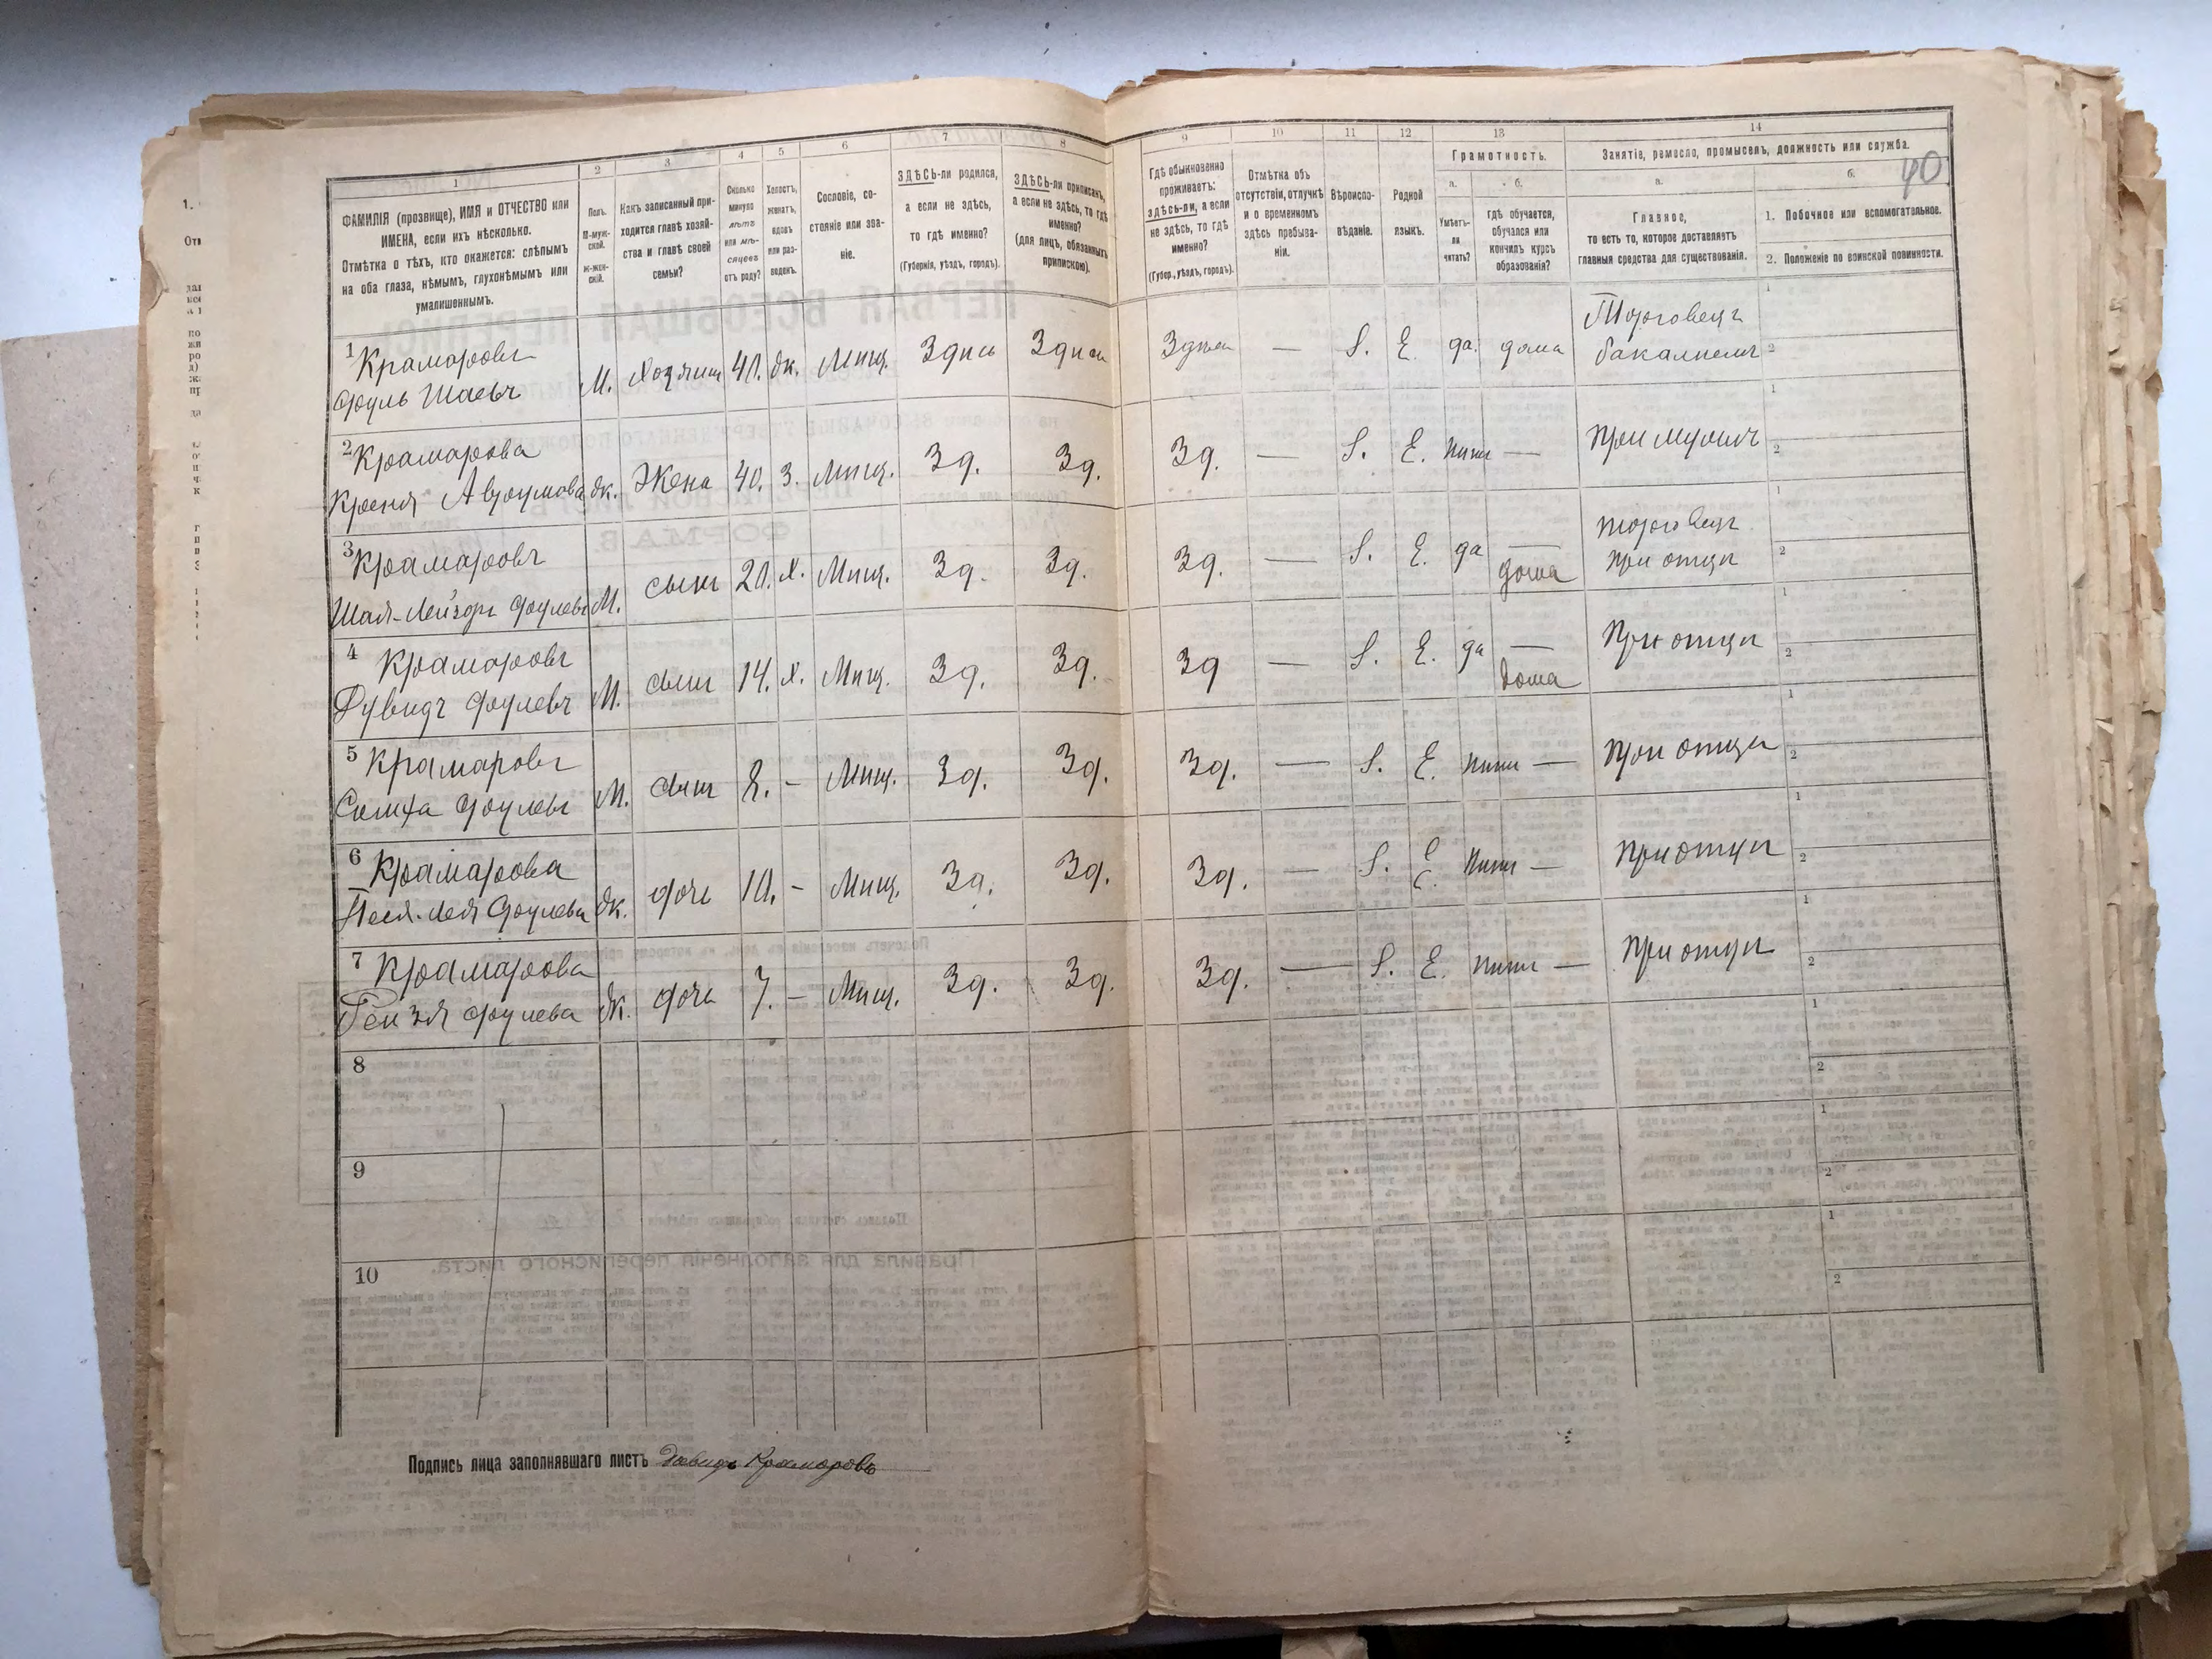 1 2 3 4 5 6 7 8 9 10 11 12 13 14
40
ФАМИЛІЯ (прозвище), ИМЯ и ОТЧЕСТВО или
ИМЕНА, если ихъ нѣсколько.
Отмѣтка о тѣхъ, кто окажется: слѣпымъ
на оба глаза, нѣмымъ, глухонѣмымъ или
умалишеннымъ.
Полъ.
М-муж-
ской.
Ж-жен-
скій.
Какъ записанный при-
ходится главѣ хозяй-
ства и главѣ своей
семьи?
Сколько
минуло
лѣтъ
или мѣ-
сяцевъ
отъ роду?
Холостъ,
женатъ,
вдовъ
или раз-
веденъ.
Сословіе, со-
стояніе или зва-
ніе.
ЗДѢСЬ-ли родился,
а если не здѣсь,
то гдѣ именно?
(Губернія, уѣздъ, городъ).
ЗДѢСЬ-ли приписанъ,
а если не здѣсь, то гдѣ
именно?
(для лицъ, обязанныхъ
припискою).
Гдѣ обыкновенно
проживаетъ:
здѣсь-ли, а если
не здѣсь, то гдѣ
именно?
(Губер., уѣздъ, городъ).
Отмѣтка объ
отсутствіи, отлучкѣ
и о временномъ
здѣсь пребыва-
ніи.
Вѣроиспо-
вѣданіе.
Родной
языкъ.
Грамотность.
а.
Умѣетъ-
ли
читать?
б.
Гдѣ обучается,
обучался или
кончилъ курсъ
образованія?
Занятіе, ремесло, промыселъ, должность или служба.
а.
Главное,
то есть то, которое доставляетъ
главныя средства для существованія.
б.
1. Побочное или вспомогательное.
2. Положеніе по воинской повинности.
1 Крамаровъ
Сруль Шаевъ М. Хозяинъ 40. ж. Мѣщ. Здѣсь Здѣсь Здѣсь — І. Е. да. дома Торговецъ
бакалѣемъ
2 Крамарова
Крейня Аврумова ж. Жена 40. з. Мѣщ. Зд. Зд. Зд. — І. Е. нѣтъ — при мужѣ
3 Крамаровъ
Шая-Лейзоръ Срулевъ М. сынъ 20. х. Мѣщ. Зд. Зд. Зд. — І. Е. да — дома торговецъ
при отцѣ
4 Крамаровъ
Дувидъ Срулевъ М. сынъ 14. х. Мѣщ. Зд. Зд. Зд — І. Е. да — дома При отцѣ
5 Крамаровъ
Срулевъ М. сынъ 8. - Мѣщ. Зд. Зд. Зд. — І. Е. нѣтъ — при отцѣ
6 Крамарова
Песя-Лея Срулева ж. дочь 10. - Мѣщ. Зд. Зд. Зд. — І. Е. нѣтъ — при отцѣ
7 Крамарова
Рейзя Срулева ж. дочь 7. - Мѣщ. Зд. Зд. Зд. — І. Е. нѣтъ — при отцѣ
8
9
10
Подпись лица заполнявшаго листъ Давидъ Крамаровъ